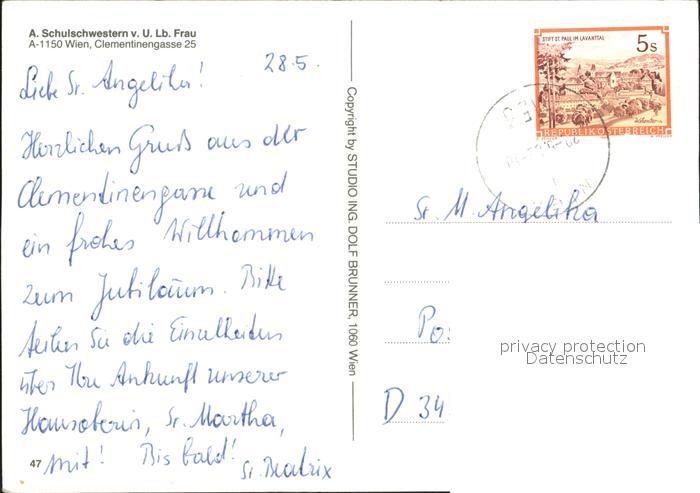 A. Schulschwestern v. U. Lb. Frau
A-1150 Wien, Clementinengasse 25
28.5.
Liebe Sr. Angelika!
Herzlichen Gruß aus der
Clementinengasse und
ein frohes Willkommen
zum Jubiläum. Bitte
teilen Sie die Einzelheiten
über Ihre Ankunft unserer
Hausoberin, Sr. Martha,
mit! Bis bald!
Sr. Beatrix
47
Copyright by STUDIO ING. DOLF BRUNNER, 1060 Wien
STIFT ST. PAUL IM LAVANTTAL
5s
REPUBLIK ÖSTERREICH
Sr. M. Angelika
Po
privacy protection
Datenschutz
D 34